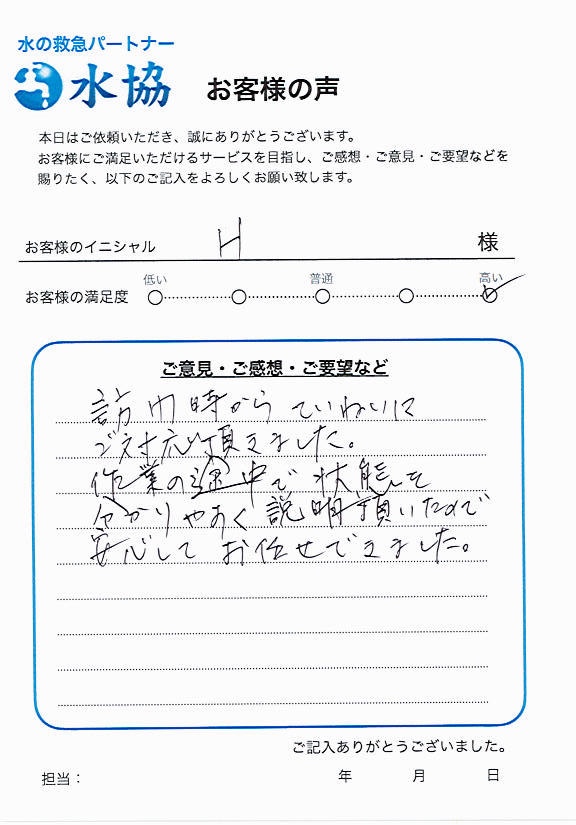 水の救急パートナー
水協 お客様の声
本日はご依頼いただき、誠にありがとうございます。
お客様にご満足いただけるサービスを目指し、ご感想・ご意見・ご要望などを
賜りたく、以下のご記入をよろしくお願い致します。
お客様のイニシャル H 様
低い 普通 高い
お客様の満足度
ご意見・ご感想・ご要望など
訪問時からていねいに
ご対応頂きました。
作業の途中で状態を
分かりやすく説明頂いたので
安心してお任せできました。
ご記入ありがとうございました。
担当： 年 月 日